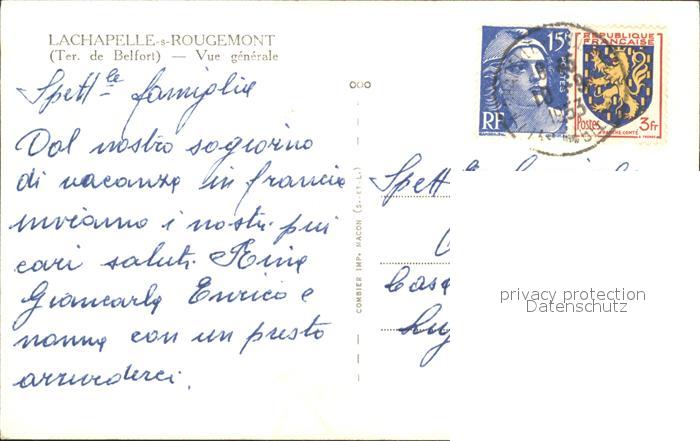 LACHAPELLE-s-ROUGEMONT
(Ter. de Belfort) — Vue générale
Spett.le famiglia
Dal nostro sogiorno
di vacanza in francia
inviamo i nostri piu
cari saluti Rina
Giancarla Enrico e
nonna con un presto
arrivederci.
COMBIER IMP. MACON (S.-ET-L.)
15F
POSTES
RF
REPUBLIQUE
FRANÇAISE
Postes 3fr
FRANCHE-COMTÉ
1953
Spett.le
Casa
privacy protection
Datenschutz